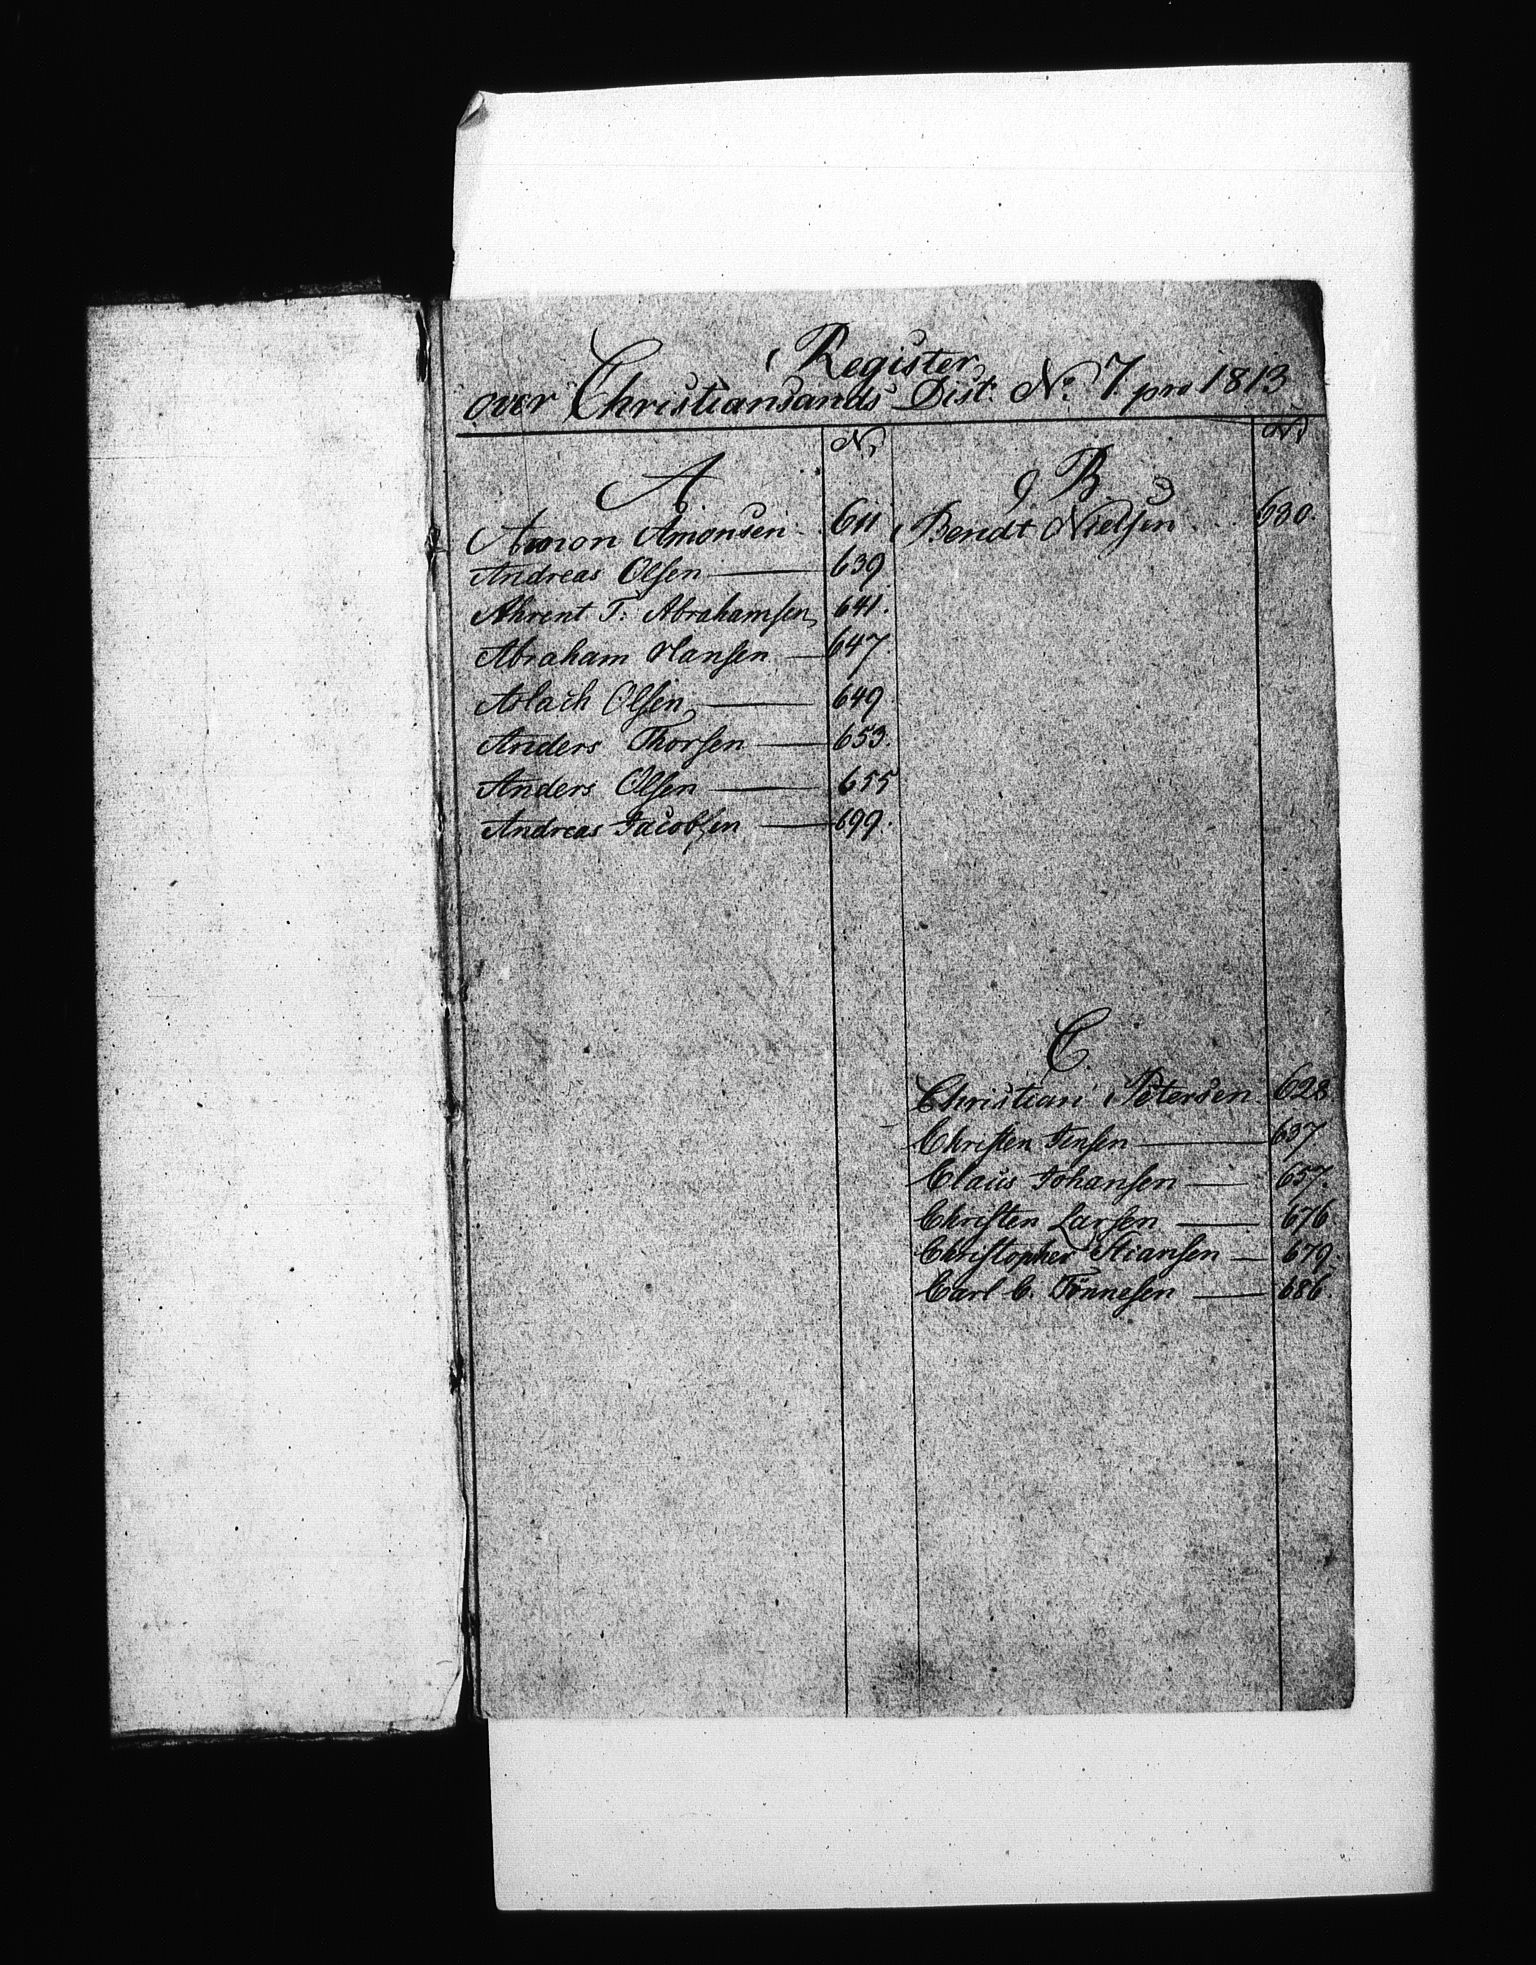 Register
over Christiansands Dist. No. 7. pro 1813
No.
A
Amon Amonsen 611
Andreas Olsen 639
Ahrent T: Abrahamsen 641.
Abraham Hansen 647.
Aslach Olsen 649.
Anders Thorsen 653.
Anders Olsen 655
Andreas Jacobsen 699.
No.
B
Bendt Nielsen 630.
C.
Christian Petersen 628
Christen Jensen 637
Claus Johansen 657.
Christen Larsen 676
Christopher Stiansen 679.
Carl C. Tönnesen 686.